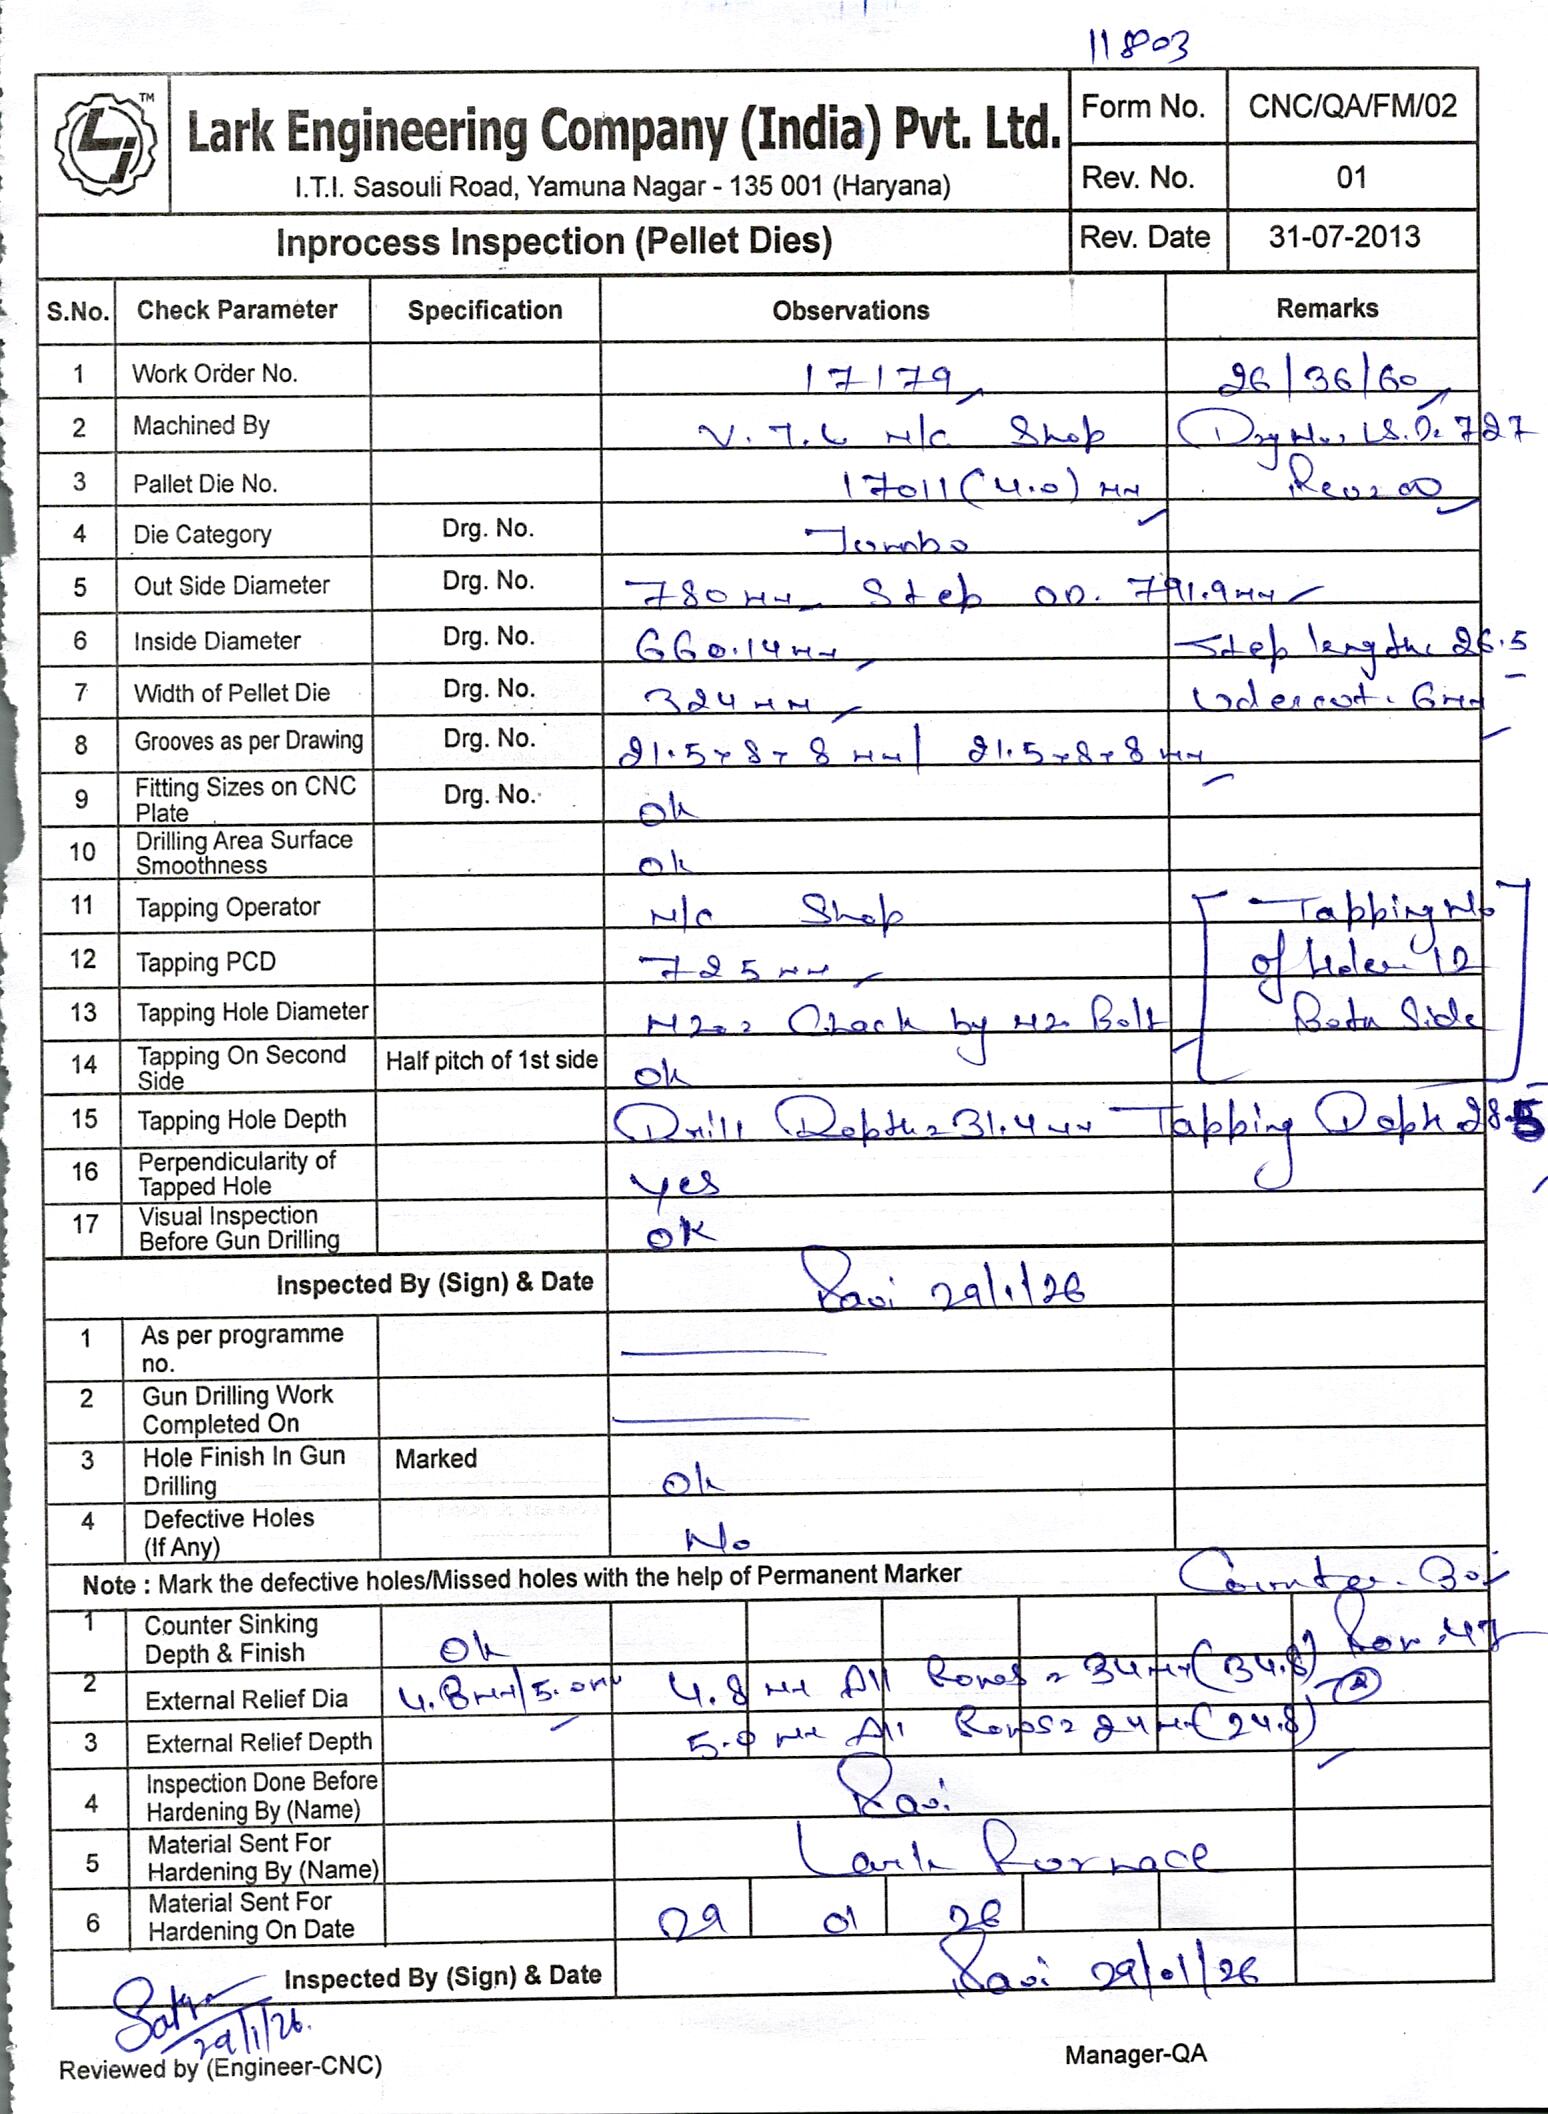 11803
TM
Lark Engineering Company (India) Pvt. Ltd.
I.T.I. Sasouli Road, Yamuna Nagar - 135 001 (Haryana)
Form No. CNC/QA/FM/02
Rev. No. 01
Inprocess Inspection (Pellet Dies)
Rev. Date 31-07-2013
S.No. Check Parameter Specification Observations Remarks
1 Work Order No. 17179 26/36/60
2 Machined By V.T.L M/C Shop Drg No. LS.D. 727
3 Pallet Die No. 17011 (4.0) mm Rev: 00
4 Die Category Drg. No. Jumbo
5 Out Side Diameter Drg. No. 780 mm Step OD. 791.9 mm
6 Inside Diameter Drg. No. 660.14 mm Step length 26.5
7 Width of Pellet Die Drg. No. 324 mm Udercut. 6mm
8 Grooves as per Drawing Drg. No. 21.5x8x8 mm / 21.5x8x8 mm
9 Fitting Sizes on CNC Plate Drg. No. ok
10 Drilling Area Surface Smoothness ok
11 Tapping Operator M/C Shop Tapping No
12 Tapping PCD 725 mm of holes 12
13 Tapping Hole Diameter M20 = Check by M20 Bolt Both Side
14 Tapping On Second Side Half pitch of 1st side ok
15 Tapping Hole Depth Drill Depth = 31.4 mm Tapping Deph 28.5
16 Perpendicularity of Tapped Hole yes
17 Visual Inspection Before Gun Drilling OK
Inspected By (Sign) & Date Ravi 29/1/26
1 As per programme no.
2 Gun Drilling Work Completed On
3 Hole Finish In Gun Drilling Marked ok
4 Defective Holes (If Any) No
Note : Mark the defective holes/Missed holes with the help of Permanent Marker Counter
1 Counter Sinking Depth & Finish ok
2 External Relief Dia 4.8mm/5.0mm 4.8 mm All Rows = 34 mm (34.8)
3 External Relief Depth 5.0 mm All Rows = 24 mm (24.8)
4 Inspection Done Before Hardening By (Name) Ravi
5 Material Sent For Hardening By (Name) Lark Furnace
6 Material Sent For Hardening On Date 29 01 26
Inspected By (Sign) & Date Ravi 29/01/26
29/1/26.
Reviewed by (Engineer-CNC) Manager-QA